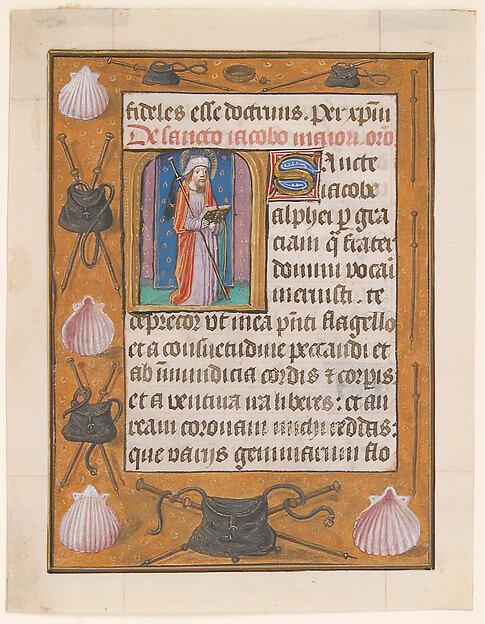 fideles esse doctrinis. Per xp̄m
De sancto iacobo maiori. or̄o.
Sancte
iacobe
alphei p̲ gra
ciam q̄ frater
domini vocai
meruisti. te
deprecor vt mea pn̄ti flagello
et a consuetudine peccandi et
ab īmundicia cordis ⁊ corp̲is
et a ventura ira liberes: et au
ream coronam michi reddas:
que varijs gemmarum flo